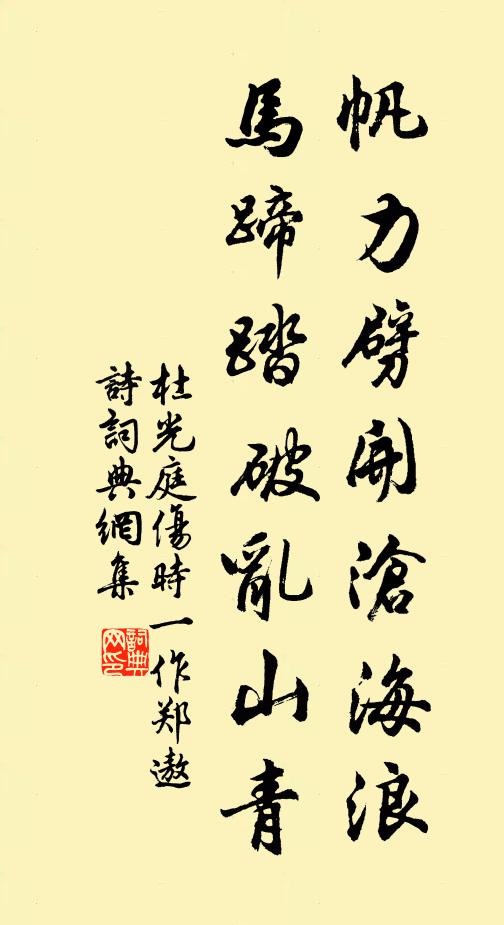 帆力劈開滄海浪
馬蹄踏破亂山青
杜光庭傷時一作郑遨
詩詞典網集
詞典
网印